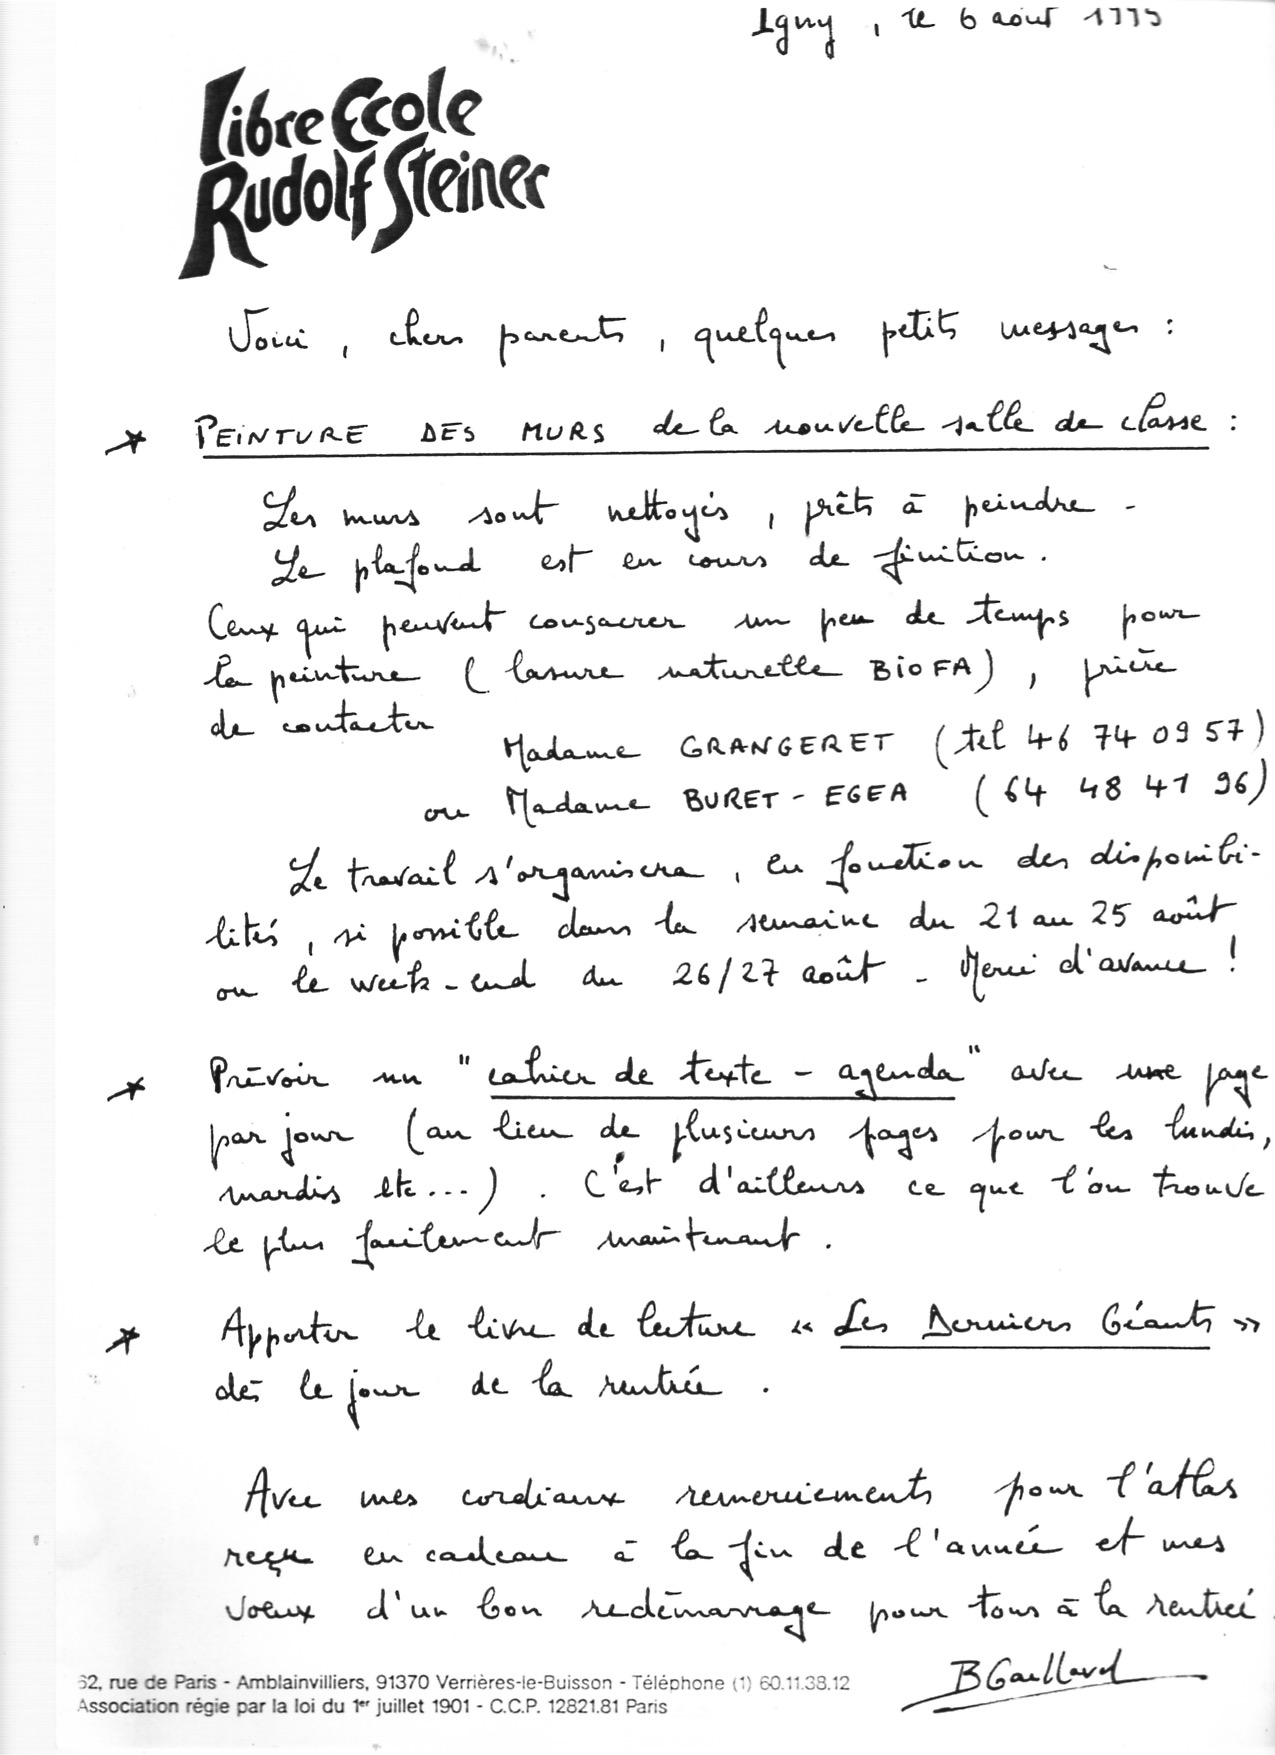 Igny, le 6 août 1995
Libre Ecole
Rudolf Steiner
Voici, chers parents, quelques petits messages :
* PEINTURE DES MURS de la nouvelle salle de classe :
Les murs sont nettoyés, prêts à peindre -
Le plafond est en cours de finition.
Ceux qui peuvent consacrer un peu de temps pour
la peinture (lasure naturelle BIOFA), prière
de contacter
Madame GRANGERET (tel 46 74 09 57)
ou Madame BURET-EGEA (64 48 41 96)
Le travail s'organisera, en fonction des disponibi-
lités, si possible dans la semaine du 21 au 25 août
ou le week-end du 26/27 août - Merci d'avance !
* Prévoir un "cahier de texte - agenda" avec une page
par jour (au lieu de plusieurs pages pour les lundis,
mardis etc...). C'est d'ailleurs ce que l'on trouve
le plus facilement maintenant.
* Apporter le livre de lecture « Les Derniers Géants »
dès le jour de la rentrée.
Avec mes cordiaux remerciements pour l'atlas
reçu en cadeau à la fin de l'année et mes
voeux d'un bon redémarrage pour tous à la rentrée.
BGaillard
62, rue de Paris - Amblainvilliers, 91370 Verrières-le-Buisson - Téléphone (1) 60.11.38.12
Association régie par la loi du 1er juillet 1901 - C.C.P. 12821.81 Paris